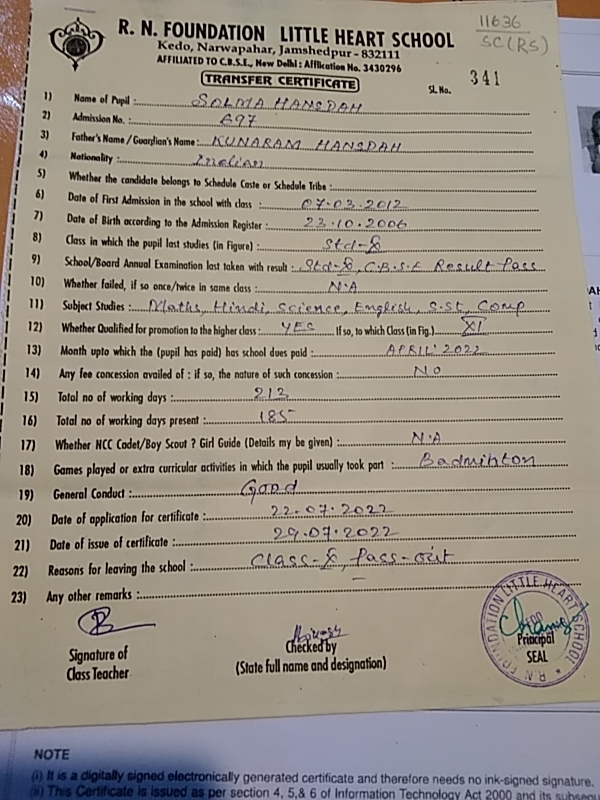 R. N. FOUNDATION LITTLE HEART SCHOOL
Kedo, Narwapahar, Jamshedpur - 832111
AFFILIATED TO C.B.S.E., New Delhi : Affilication No. 3430296
11636
SC(RS)
TRANSFER CERTIFICATE
SL No. 341
1) Name of Pupil : SALMA HANSDAH
2) Admission No. : 697
3) Father's Name / Guardian's Name : KUNARAM HANSDAH
4) Nationality : Indian
5) Whether the candidate belongs to Schedule Caste or Schedule Tribe :
6) Date of First Admission in the school with class : 07.03.2012
7) Date of Birth according to the Admission Register : 23.10.2006
8) Class in which the pupil last studies (in Figure) : Std-X
9) School/Board Annual Examination last taken with result : Std-X, C.B.S.E Result Pass
10) Whether failed, if so once/twice in same class : N.A
11) Subject Studies : Maths, Hindi, Science, English, S.St, Comp
12) Whether Qualified for promotion to the higher class : YES If so, to which Class (in Fig.) XI
13) Month upto which the (pupil has paid) has school dues paid : APRIL' 2022
14) Any fee concession availed of : if so, the nature of such concession : NO
15) Total no of working days : 213
16) Total no of working days present : 185
17) Whether NCC Cadet/Boy Scout ? Girl Guide (Details my be given) : N.A
18) Games played or extra curricular activities in which the pupil usually took part : Badminton
19) General Conduct : Good
20) Date of application for certificate : 22.07.2022
21) Date of issue of certificate : 29.07.2022
22) Reasons for leaving the school : Class-X, Pass-out
23) Any other remarks :
Signature of
Class Teacher
Checked by
(State full name and designation)
Principal
SEAL
R. N. FOUNDATION LITTLE HEART SCHOOL
NOTE
(i) It is a digitally signed electronically generated certificate and therefore needs no ink-signed signature.
(ii) This Certificate is issued as per section 4, 5,& 6 of Information Technology Act 2000 and its